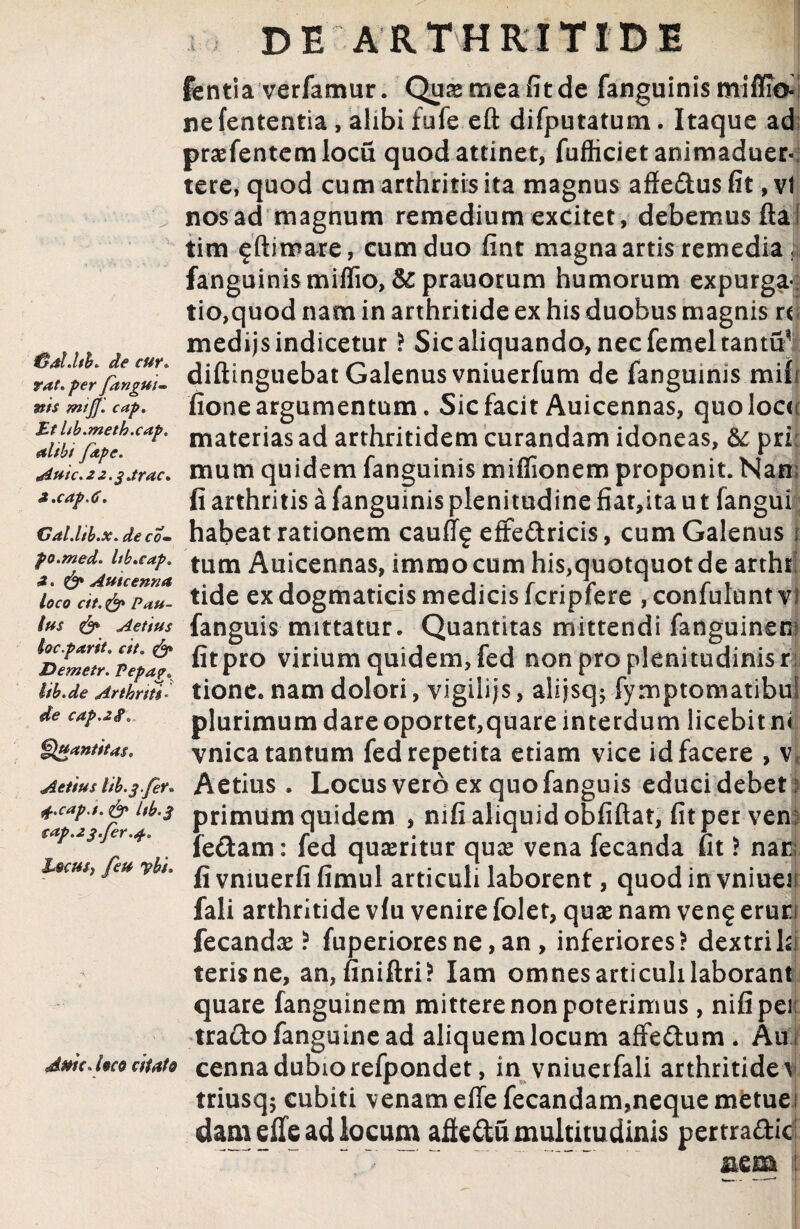 DE ARTHRITIDE
sentia versamur. Quæ mea sit de sanguinis missio-
ne sententia, alibi fuse est disputatum. Itaque ad
præsentem locū quod attinet, sufficiet animaduer-
tere, quod cum arthritis ita magnus affectus sit, vt
nos ad magnum remedium excitet, debemus sta
tim ęstimare, cum duo sint magna artis remedia,
sanguinis missio, & prauorum humorum expurga-
tio, quod nam in arthritide ex his duobus magnis re
medijs indicetur? Sic aliquando, nec semel tantū
distinguebat Galenus vniuersum de sanguinis mis
sione argumentum. Sic facit Auicennas, quo loco
materias ad arthritidem curandam idoneas, & pri
mum quidem sanguinis missionem proponit. Nam
si arthritis à sanguinis plenitudine fiat, ita ut sangui
habeat rationem caussę effectricis, cum Galenus
tum Auicennas, immo cum his, quotquot de arthri
tide ex dogmaticis medicis scripsere, consulunt v
sanguis mittatur. Quantitas mittendi sanguinem
sit pro virium quidem, sed non pro plenitudinis r
tione. nam dolori, vigilijs, alijsq; symptomatibu
plurimum dare oportet, quare interdum licebit n
vnica tantum sed repetita etiam vice id facere, v
Aetius. Locus verò ex quo sanguis educi debet
primum quidem, nisi aliquid obsistat, sit per ven
sectam: sed quæritur quæ vena secanda sit? nam
si vniuersi simul articuli laborent, quod in vniuer
sali arthritide vsu venire solet, quæ nam venę erun
secandæ? superiores ne, an, inferiores? dextri la
teris ne, an, sinistri? Iam omnes articuli laborant
quare sanguinem mittere non poterimus, nisi per
tracto sanguine ad aliquem locum affectum. Aui
cenna dubio respondet, in vniuersali arthritide v
triusq; cubiti venam esse secandam, neque metuen
dam esse ad locum affectū multitudinis pertractio
nem
Gal.lib. de cur.
rat. per sangui-
nis miss. cap.
Et lib.meth.cap.
alibi sæpe.
Auic.22.3.trac.
2.cap.6.
Gal.lib.x. de cō-
po.med. lib.cap.
2. & Auicenna
loco cit. & Pau-
lus & Aetius
loc.parit. cit. &
Demetr. Pepag.
lib.de Arthriti-
de cap.28.
Quantitas.
Aetius lib.3.ser.
4.cap.1. & lib.3
cap.23.ser.4.
Locus, seu vbi.
Auic. loco citato